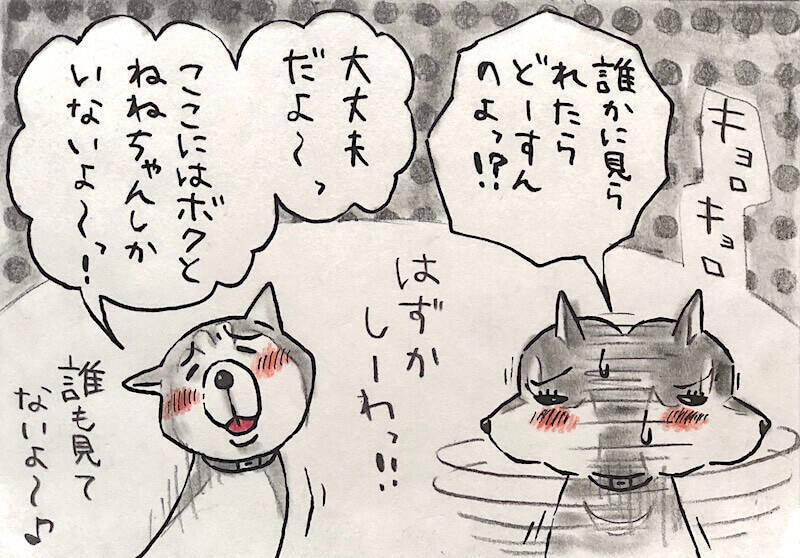 キョロ
キョロ
誰かに見ら
れたら
どーすん
のよっ!?
はずか
しーわっ!!
大丈夫
だよ〜っ
ここにはボクと
ねねちゃんしか
いないよ〜っ!
誰も見て
ないよ〜♪